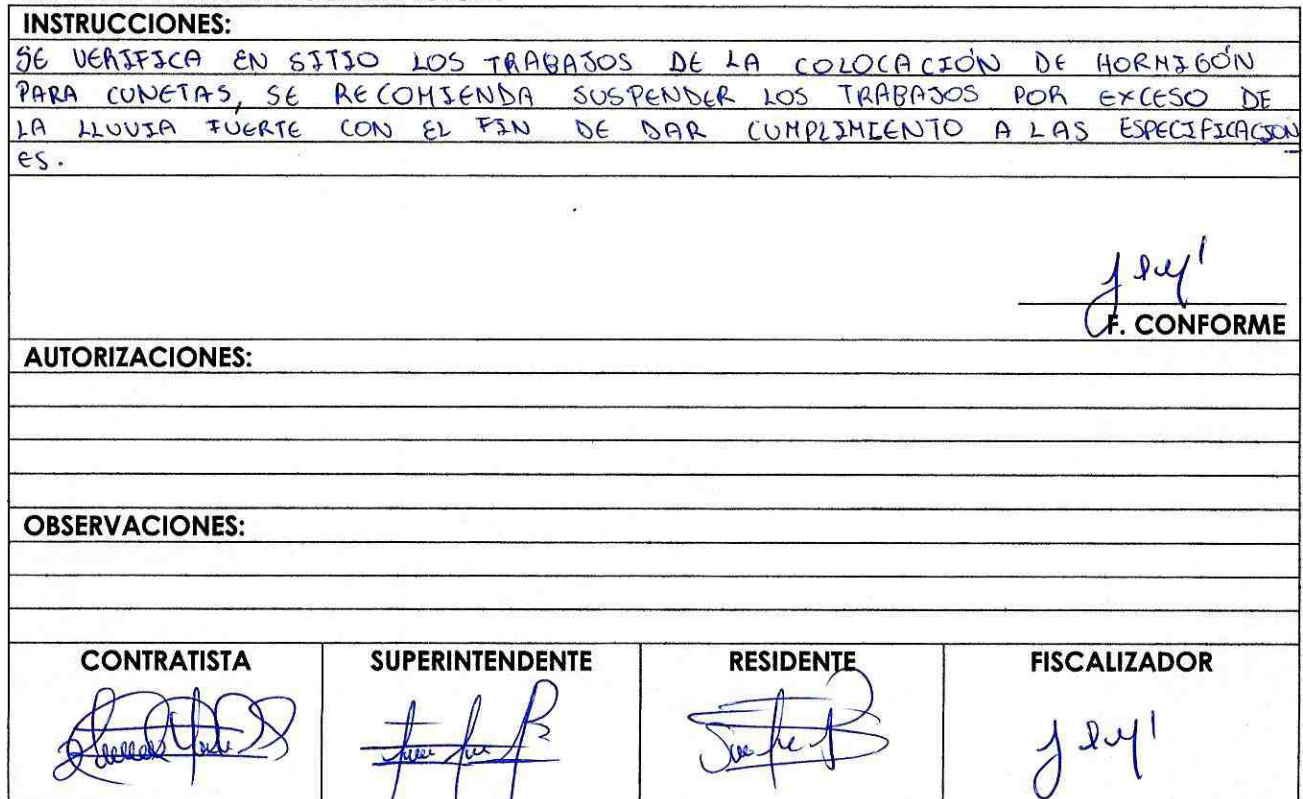 INSTRUCCIONES:
SE VERIFICA EN SITIO LOS TRABAJOS DE LA COLOCACIÓN DE HORMIGÓN
PARA CUNETAS, SE RECOMIENDA SUSPENDER LOS TRABAJOS POR EXCESO DE
LA LLUVIA FUERTE CON EL FIN DE DAR CUMPLIMIENTO A LAS ESPECIFICACION
ES.
F. CONFORME
AUTORIZACIONES:
OBSERVACIONES:
CONTRATISTA SUPERINTENDENTE RESIDENTE FISCALIZADOR